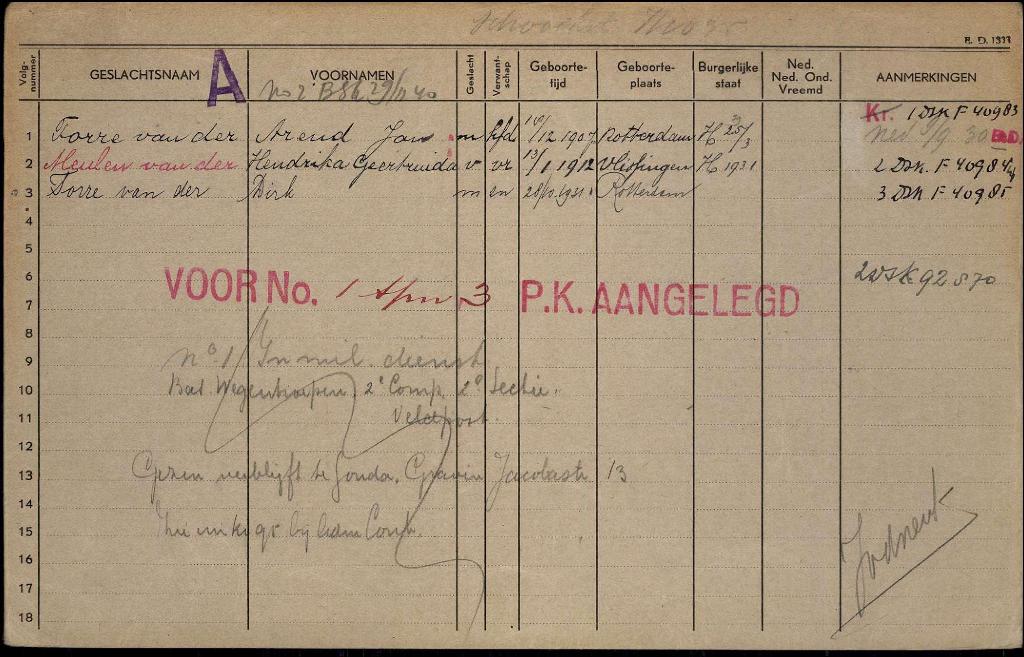 B. D. 1333
Volg-nummer GESLACHTSNAAM A VOORNAMEN Geslacht Verwant-schap Geboorte-tijd Geboorte-plaats Burgerlijke staat Ned. Ned. Ond. Vreemd AANMERKINGEN
No 2 BSK 29/11 40
Kr. 1 DSK F 40983
1 Torre van der Arend Jan m hfd 16/12 1907 Rotterdam H 25/3 ned 1/9 30 BD
2 Meulen van der Hendrika Geertruida v vr 13/1 1912 Vlissingen H 1931 2 DSK. F 40984
3 Torre van der Dirk m zn 28/10.1931 Rotterdam 3 DSK F 40985
4
5
6 2 DSK 92870
VOOR No. 1 t/m 3 P.K. AANGELEGD
7
8
9 No 1/ In mil. dienst
10 Bat. Wegentroepen, 2e Comp. 2e Sectie.
11 Veldpost.
12
13 Gezin verblijft te Gouda. Gravin Jacobastr 13
14
15
16
17
18